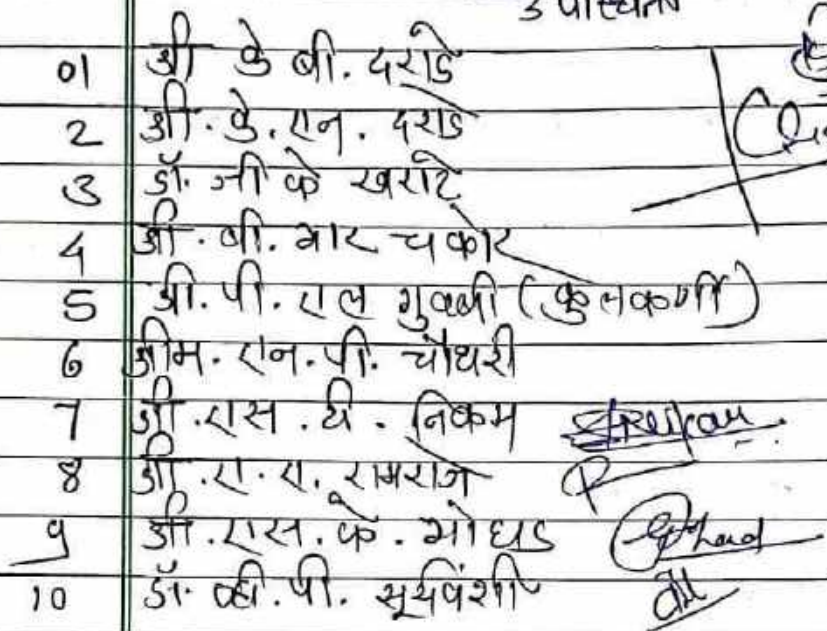 उपस्थिती
01 श्री के बी. दराडे
2 श्री. के. एन. दराडे
3 डॉ. जी के खराटे
4 श्री. बी. आर चकोर
5 श्री. पी. एल (कुलकर्णी)
6 श्रीम. एन. पी. चौधरी
7 श्री. एस. टी. निकम
8 श्री. ए. ए. रामराजे
9 श्री. एस. के. गोधड
10 डॉ. व्ही. पी. सूर्यवंशी